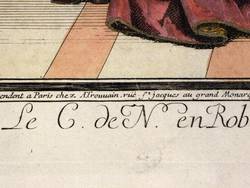 endent a Paris chez A Trouuain, rue St. jacques au grand Monarq
Le C. de N. en Rob